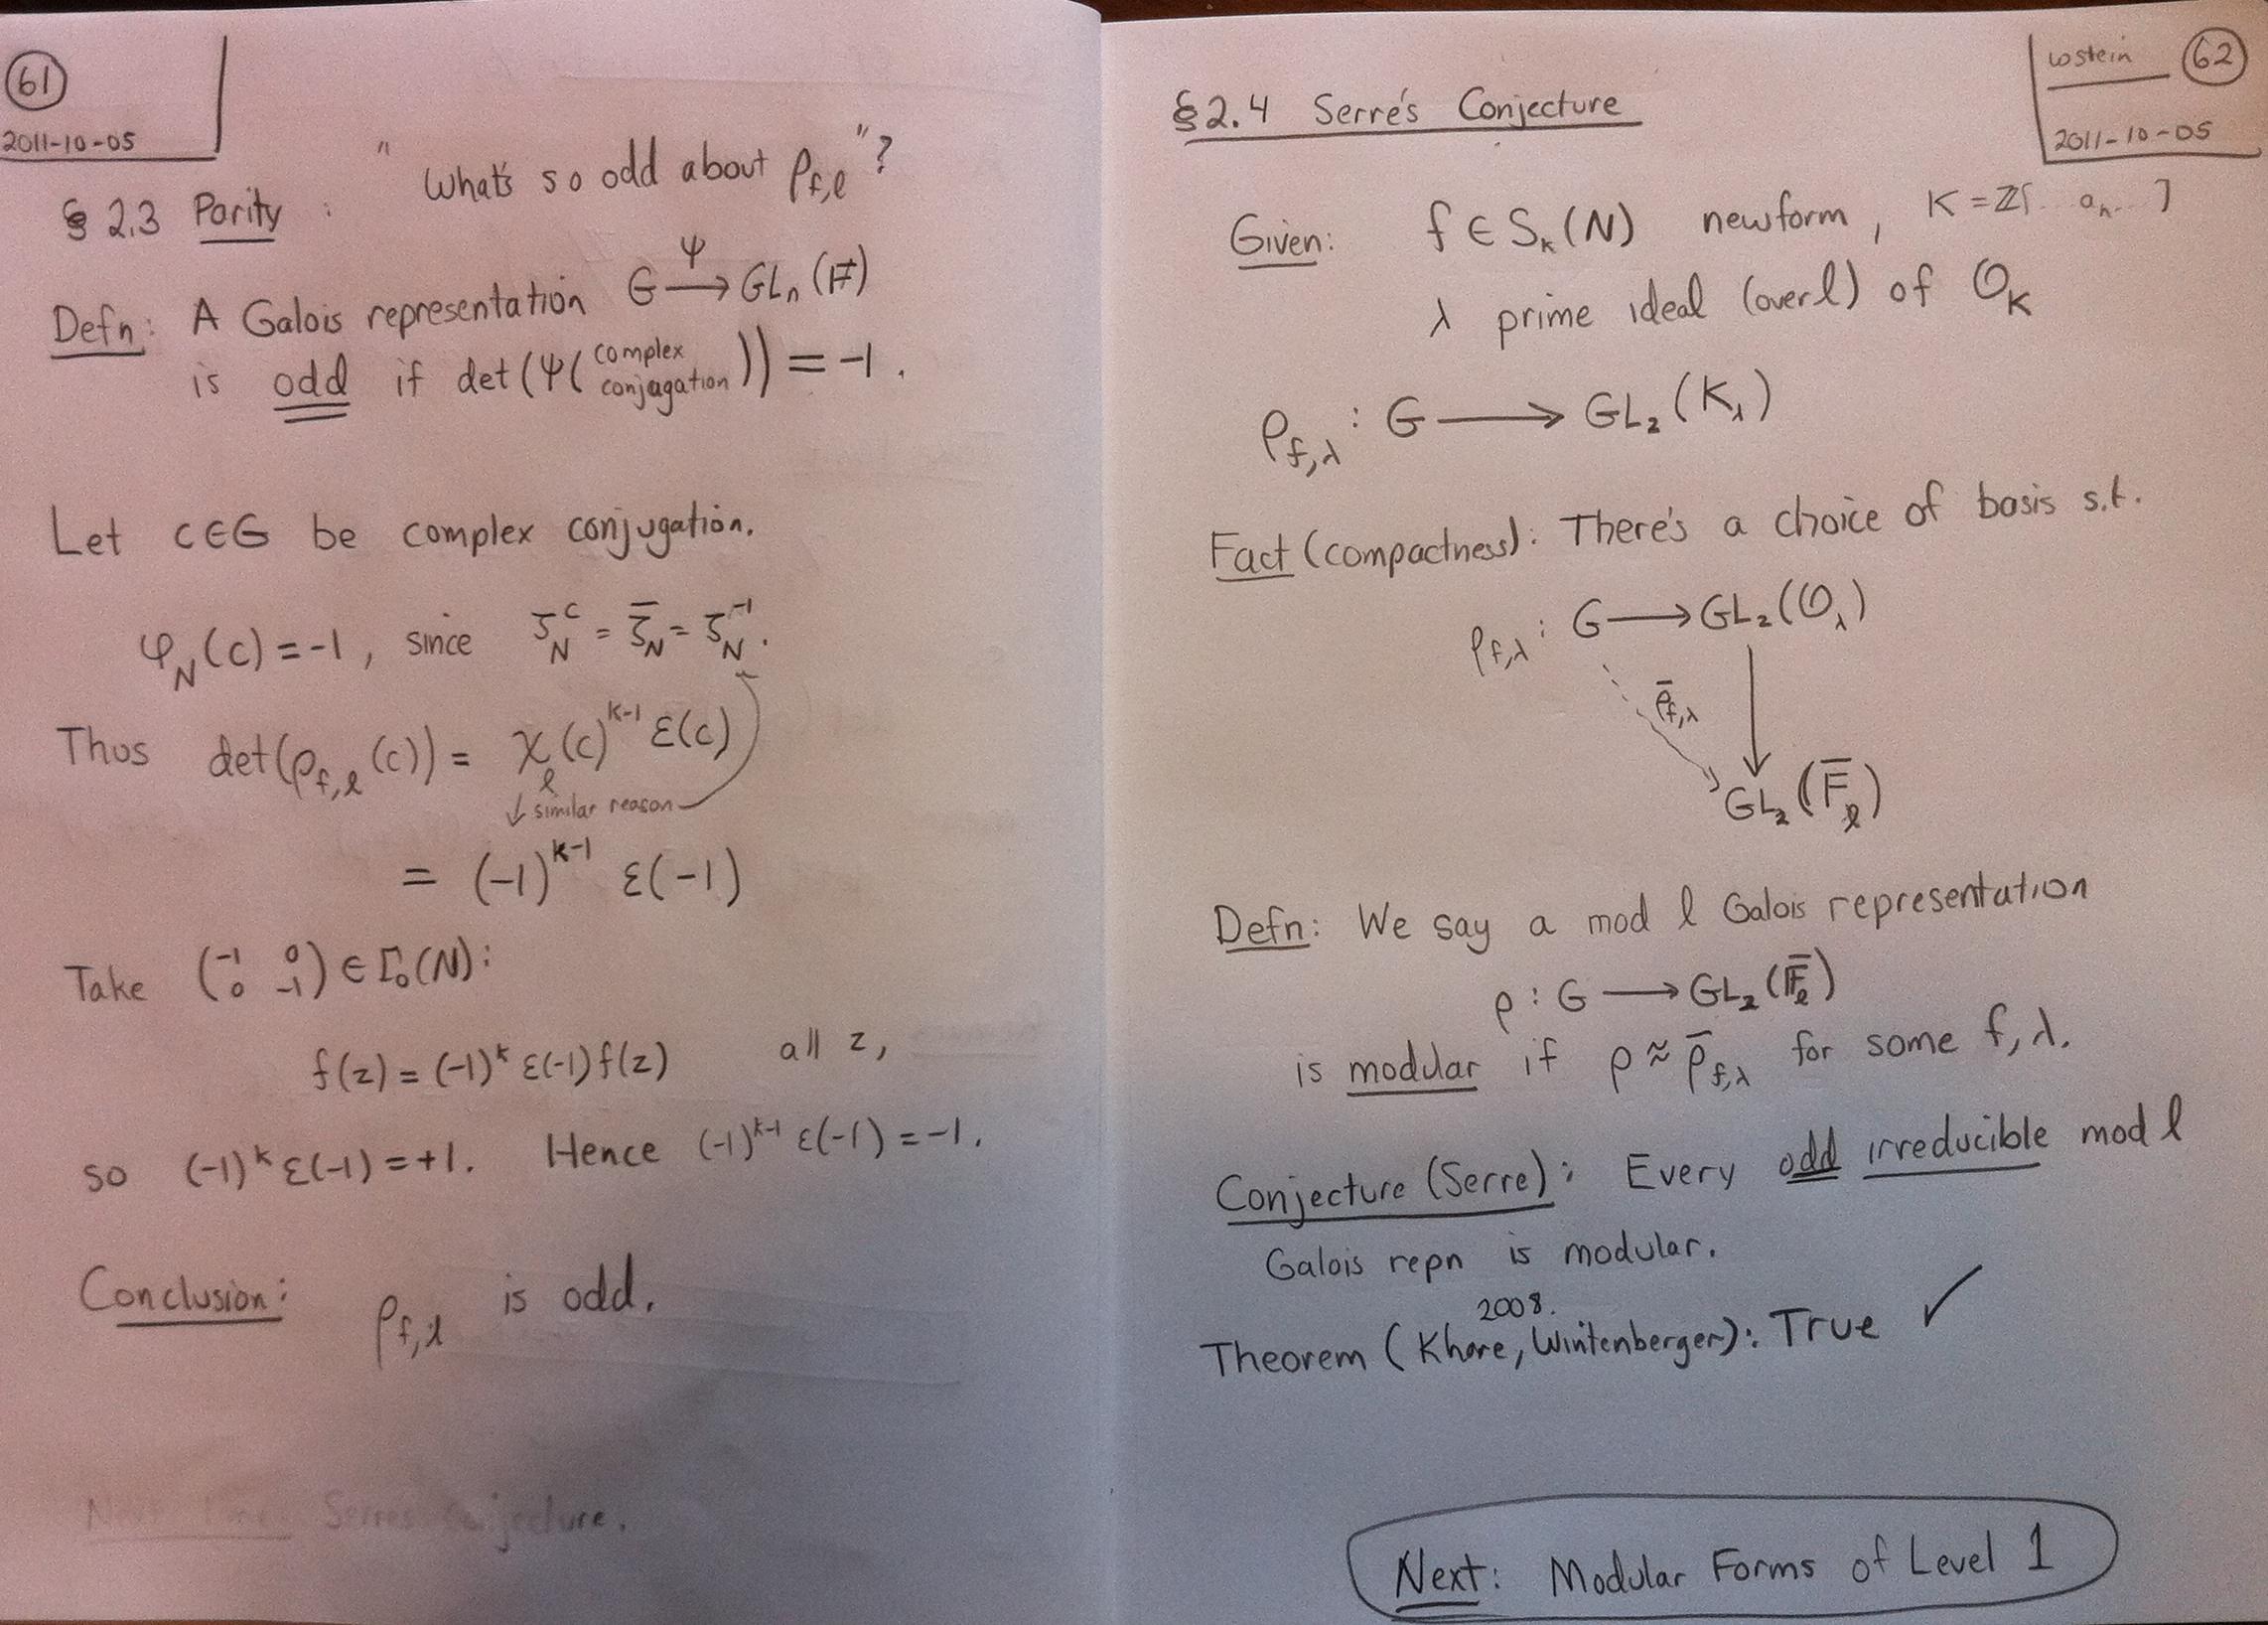 61
2011-10-05
"What's so odd about ρ_{f,ℓ}"?
§ 2.3 Parity :
Defn: A Galois representation G —ψ→ GL_n(F)
is odd if det(ψ(complex conjagation)) = -1.
Let c∈G be complex conjugation.
φ_N(c) = -1, since ζ_N^c = ζ̄_N = ζ_N^{-1}.
Thus det(ρ_{f,ℓ}(c)) = χ_ℓ(c)^{k-1} ε(c)
↓ similar reason
= (-1)^{k-1} ε(-1)
Take (-1 0 0 -1) ∈ Γ_0(N):
f(z) = (-1)^k ε(-1) f(z) all z,
so (-1)^k ε(-1) = +1. Hence (-1)^{k-1} ε(-1) = -1.
Conclusion: ρ_{f,λ} is odd.
Next Time: Serre's Conjecture.
wstein 62
2011-10-05
§2.4 Serre's Conjecture
Given: f ∈ S_k(N) newform, K = Z[...a_n...]
λ prime ideal (over ℓ) of O_K
ρ_{f,λ} : G ⟶ GL_2(K_λ)
Fact (compactness): There's a choice of basis s.t.
ρ_{f,λ} : G ⟶ GL_2(O_λ)
ρ̄_{f,λ}
GL_2(F̄_ℓ)
Defn: We say a mod ℓ Galois representation
ρ : G ⟶ GL_2(F̄_ℓ)
is modular if ρ ≈ ρ̄_{f,λ} for some f, λ.
Conjecture (Serre): Every odd irreducible mod ℓ
Galois repn is modular.
2008.
Theorem (Khare, Wintenberger): True ✓
Next: Modular Forms of Level 1